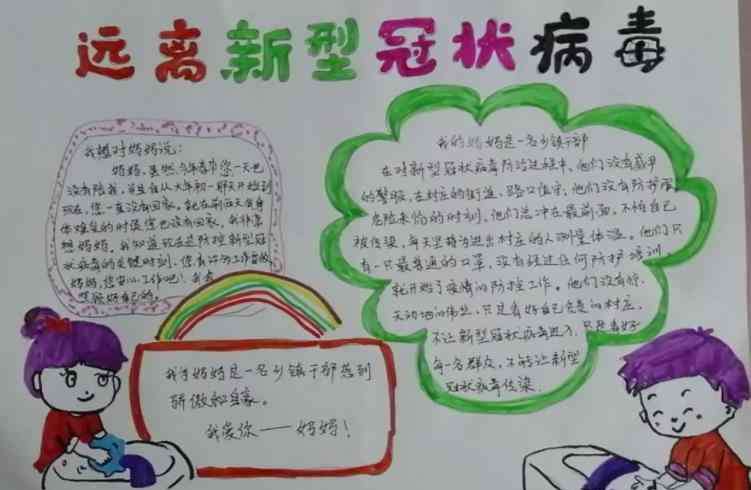 远离新型冠状病毒
我想对妈妈说:
妈妈,虽然今年春节您一天也
没有陪我,并且从大年初一那天开始到
现在,您一直没有回家,就在
您也没有回家,我非常
想妈妈,我知道现在是防控新型冠
状病毒的关键时刻,您有
妈妈,您安心工作吧!我会
照顾好自己的。
我为妈妈是一名乡镇干部感到
骄傲和自豪。
我爱你——妈妈!
我的妈妈是一名乡镇干部
在对新型冠状病毒防治过程中,他们没有
的警服,在村庄的街道、路口值守,他们没有防护服
危险来临的时刻,他们总冲在最前面,不怕自己
被传染,每天坚持为进出村庄的人测量体温。他们只
有一只最普通的口罩,没有经过任何防护培训,
就开始了疫情的防控工作。他们没有惊
天动地的伟业,只是看好自己负责的村庄,
不让新型冠状病毒进入,只是看好
每一名群众,不能让新型
冠状病毒传染。